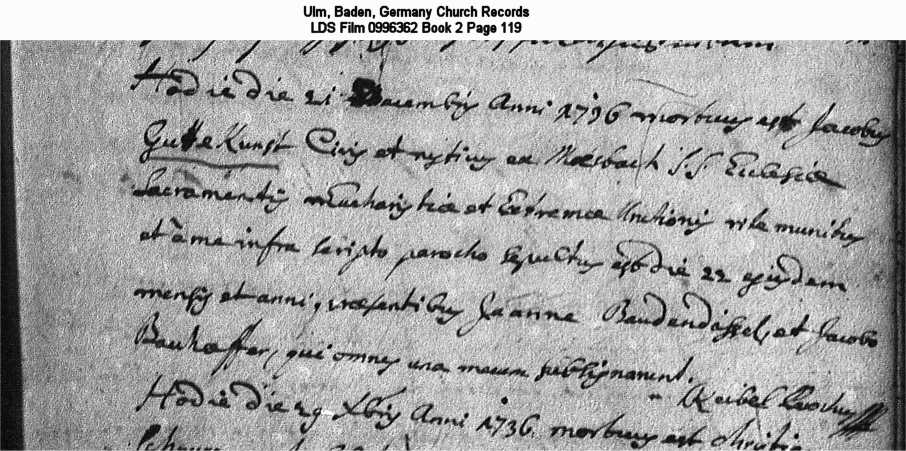 Ulm, Baden, Germany Church Records
LDS Film 0996362 Book 2 Page 119
Hodie die 21 Decembris Anni 1736 mortuus est Jacobus
Guttekunst Civis et rusticus ex Mösbach SS Eclesiæ
Sacramentis Eucharistiæ et Extremæ Unctionis rite munitus
et à me infra scripto parocho sepultus est die 22 ejusdem
mensis et anni, præsentibus Joanne Baudendissel, et Jacobo
Bauhoffer, qui omnes una mecum subsignarunt.
Keibel Parochus
Hodie die 29 Xbris Anni 1736. mortuus est